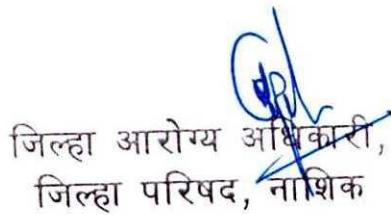 जिल्हा आरोग्य अधिकारी,
जिल्हा परिषद, नाशिक